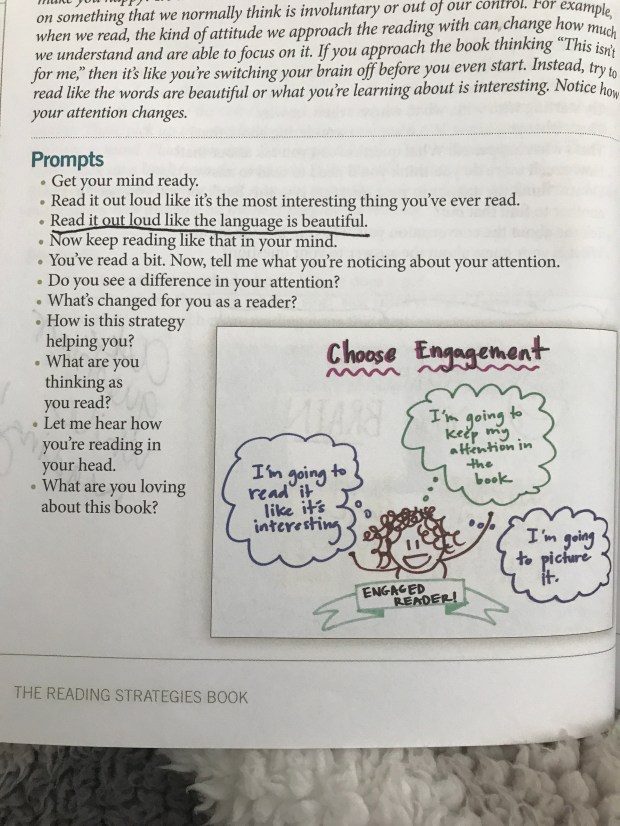 on something that we normally think is involuntary or out of our control. For example,
when we read, the kind of attitude we approach the reading with can change how much
we understand and are able to focus on it. If you approach the book thinking “This isn’t
for me,” then it’s like you’re switching your brain off before you even start. Instead, try to
read like the words are beautiful or what you’re learning about is interesting. Notice how
your attention changes.
Prompts
• Get your mind ready.
• Read it out loud like it’s the most interesting thing you’ve ever read.
• Read it out loud like the language is beautiful.
• Now keep reading like that in your mind.
• You’ve read a bit. Now, tell me what you’re noticing about your attention.
• Do you see a difference in your attention?
• What’s changed for you as a reader?
• How is this strategy
helping you?
• What are you
thinking as
you read?
• Let me hear how
you’re reading in
your head.
• What are you loving
about this book?
Choose Engagement
I'm going to
keep my
attention in
the
book
I'm going to
read it
like it's
interesting
I'm going
to picture
it.
ENGAGED
READER!
THE READING STRATEGIES BOOK